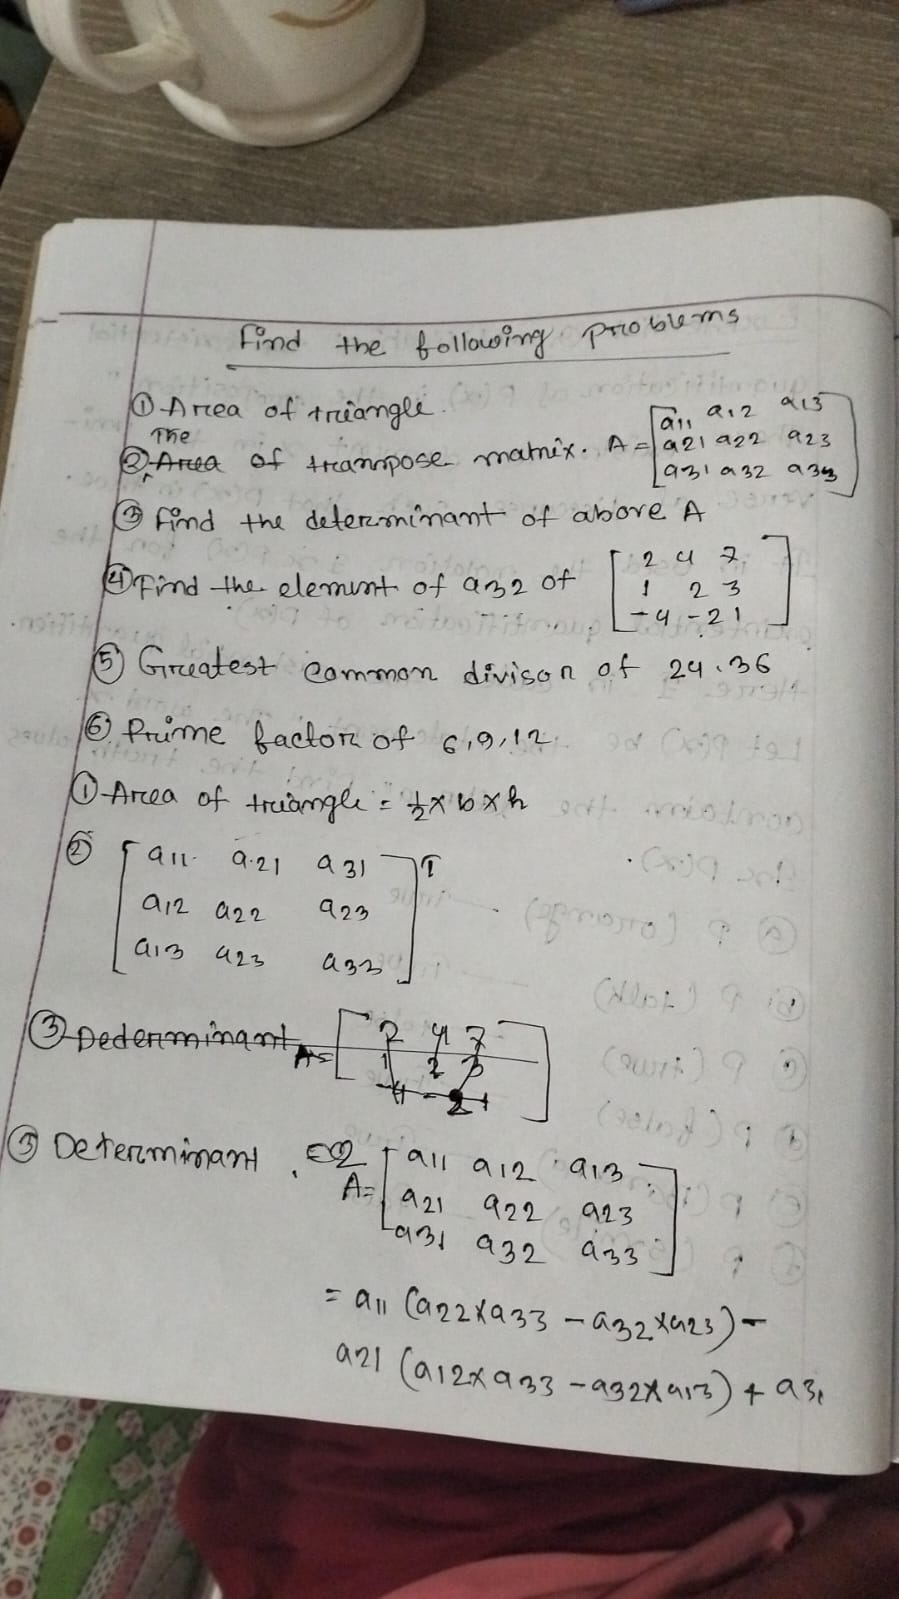 Find the following problems
① Area of triangle.
The
② Area of transpose matrix. A = [a11 a12 a13
a21 a22 a23
a31 a32 a33]
③ Find the determinant of above A
④ Find the element of a32 of [2 4 7
1 2 3
-4 -2 1]
⑤ Greatest common divison of 24.36
⑥ Prime factor of 6,9,12
① Area of triangle = 1/2 × b × h
② [a11 a21 a31
a12 a22 a23
a13 a23 a33]T
③ Dederminant A = [2 4 7
1 2 3
-4 -2 1]
③ Determinant.
A = [a11 a12 a13
a21 a22 a23
a31 a32 a33]
= a11 (a22 × a33 - a32 × a23) -
a21 (a12 × a33 - a32 × a13) + a31